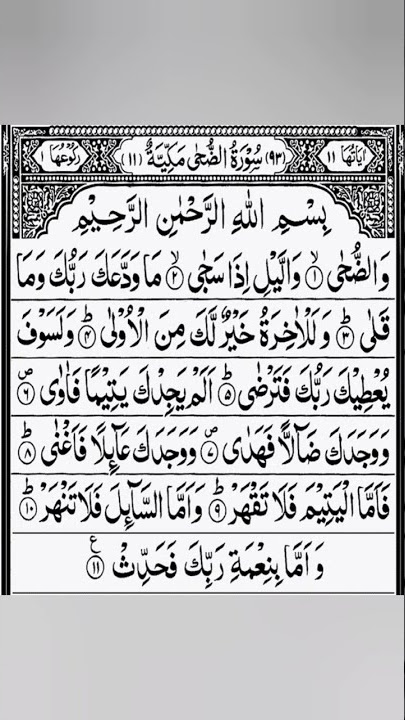 اٰیَاتُهَا ۱۱ (۹۳) سُوْرَةُ الضُّحٰى مَكِّيَّةٌ (۱۱) رُكُوْعُهَا ۱
بِسْمِ اللّٰهِ الرَّحْمٰنِ الرَّحِيْمِ
وَالضُّحٰى ۙ﴿۱﴾ وَالَّيْلِ اِذَا سَجٰى ۙ﴿۲﴾ مَا وَدَّعَكَ رَبُّكَ وَمَا
قَلٰى ؕ﴿۳﴾ وَلَلْاٰخِرَةُ خَيْرٌ لَّكَ مِنَ الْاُوْلٰى ؕ﴿۴﴾ وَلَسَوْفَ
يُعْطِيْكَ رَبُّكَ فَتَرْضٰى ؕ﴿۵﴾ اَلَمْ يَجِدْكَ يَتِيْمًا فَاٰوٰى ۪﴿۶﴾
وَوَجَدَكَ ضَآلًّا فَهَدٰى ۪﴿۷﴾ وَوَجَدَكَ عَآئِلًا فَاَغْنٰى ؕ﴿۸﴾
فَاَمَّا الْيَتِيْمَ فَلَا تَقْهَرْ ؕ﴿۹﴾ وَاَمَّا السَّآئِلَ فَلَا تَنْهَرْ ؕ﴿۱۰﴾
وَاَمَّا بِنِعْمَةِ رَبِّكَ فَحَدِّثْ ﴿۱۱﴾ ع